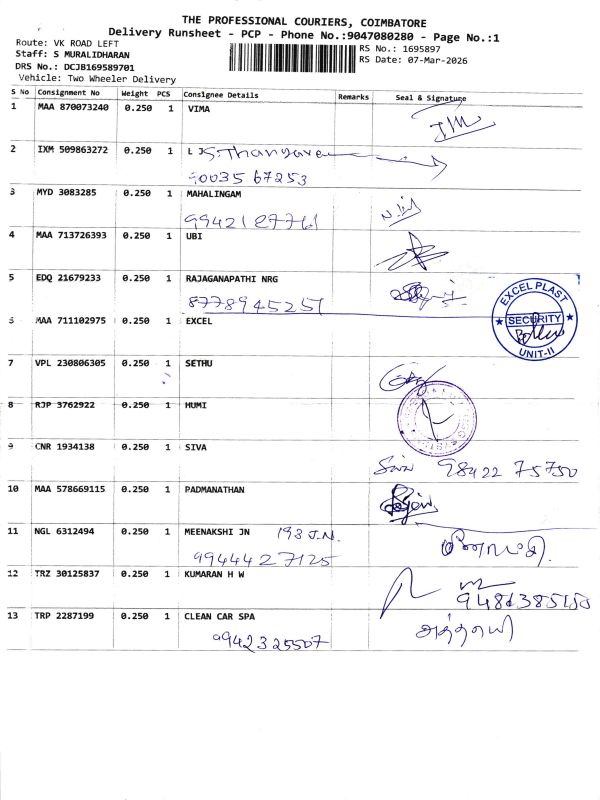 THE PROFESSIONAL COURIERS, COIMBATORE
Delivery Runsheet - PCP - Phone No.:9047080280 - Page No.:1
Route: VK ROAD LEFT
Staff: S MURALIDHARAN
DRS No.: DCJB169589701
Vehicle: Two Wheeler Delivery
RS No.: 1695897
RS Date: 07-Mar-2026
S No Consignment No Weight PCS Consignee Details Remarks Seal & Signature
1 MAA 870073240 0.250 1 VIMA
2 IXM 509863272 0.250 1 L J S. Thangavel
90035 67253
3 MYD 3083285 0.250 1 MAHALINGAM
9942127761
4 MAA 713726393 0.250 1 UBI
5 EDQ 21679233 0.250 1 RAJAGANAPATHI NRG
8778945251
6 MAA 711102975 0.250 1 EXCEL
EXCEL PLAST
SECURITY
UNIT-II
7 VPL 230806305 0.250 1 SETHU
8 RJP 3762922 0.250 1 HUMI
9 CNR 1934138 0.250 1 SIVA
Siva 98422 75750
10 MAA 578669115 0.250 1 PADMANATHAN
11 NGL 6312494 0.250 1 MEENAKSHI JN 193 J.N.
9944427125 மீனாட்சி
12 TRZ 30125837 0.250 1 KUMARAN H W
13 TRP 2287199 0.250 1 CLEAN CAR SPA
9942325507